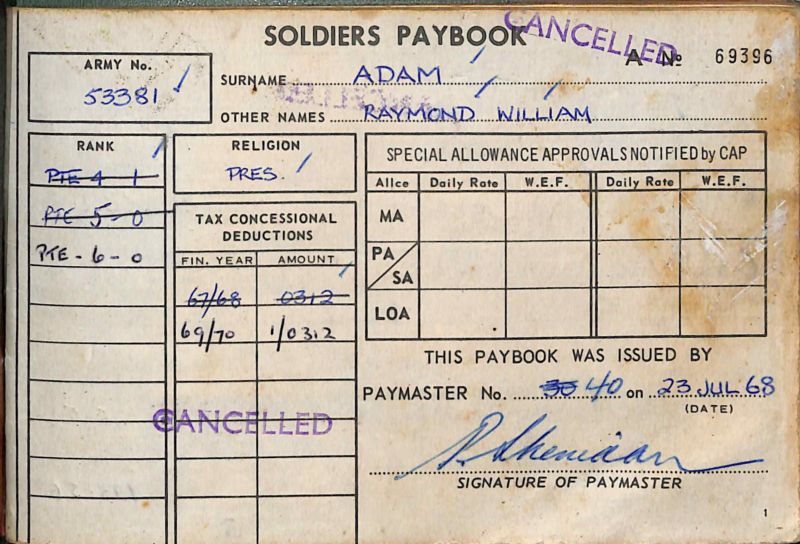 SOLDIERS PAYBOOK
CANCELLED
A No 69396
ARMY No.
53381
SURNAME ADAM
OTHER NAMES RAYMOND WILLIAM
RANK
PTE 4 1
PTE 5-0
PTE-6-0
RELIGION
PRES.
TAX CONCESSIONAL
DEDUCTIONS
FIN. YEAR AMOUNT
67/68 0312
69/70 1/0312
CANCELLED
SPECIAL ALLOWANCE APPROVALS NOTIFIED by CAP
Allce Daily Rate W.E.F. Daily Rate W.E.F.
MA
PA/SA
LOA
THIS PAYBOOK WAS ISSUED BY
PAYMASTER No. 40 on 23 JUL 68
(DATE)
SIGNATURE OF PAYMASTER
1